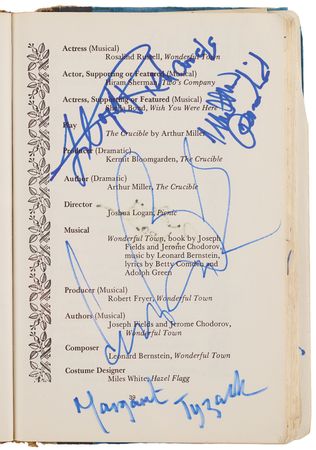 Actress (Musical)
Rosalind Russell, Wonderful Town
Actor, Supporting or Featured (Musical)
Hiram Sherman, Two's Company
Actress, Supporting or Featured (Musical)
Sheila Bond, Wish You Were Here
Play
The Crucible by Arthur Miller
Producer (Dramatic)
Kermit Bloomgarden, The Crucible
Author (Dramatic)
Arthur Miller, The Crucible
Director
Joshua Logan, Picnic
Musical
Wonderful Town, book by Joseph
Fields and Jerome Chodorov,
music by Leonard Bernstein,
lyrics by Betty Comden and
Adolph Green
Producer (Musical)
Robert Fryer, Wonderful Town
Authors (Musical)
Joseph Fields and Jerome Chodorov,
Wonderful Town
Composer
Leonard Bernstein, Wonderful Town
Costume Designer
Miles White, Hazel Flagg
Margaret Tyzack
39